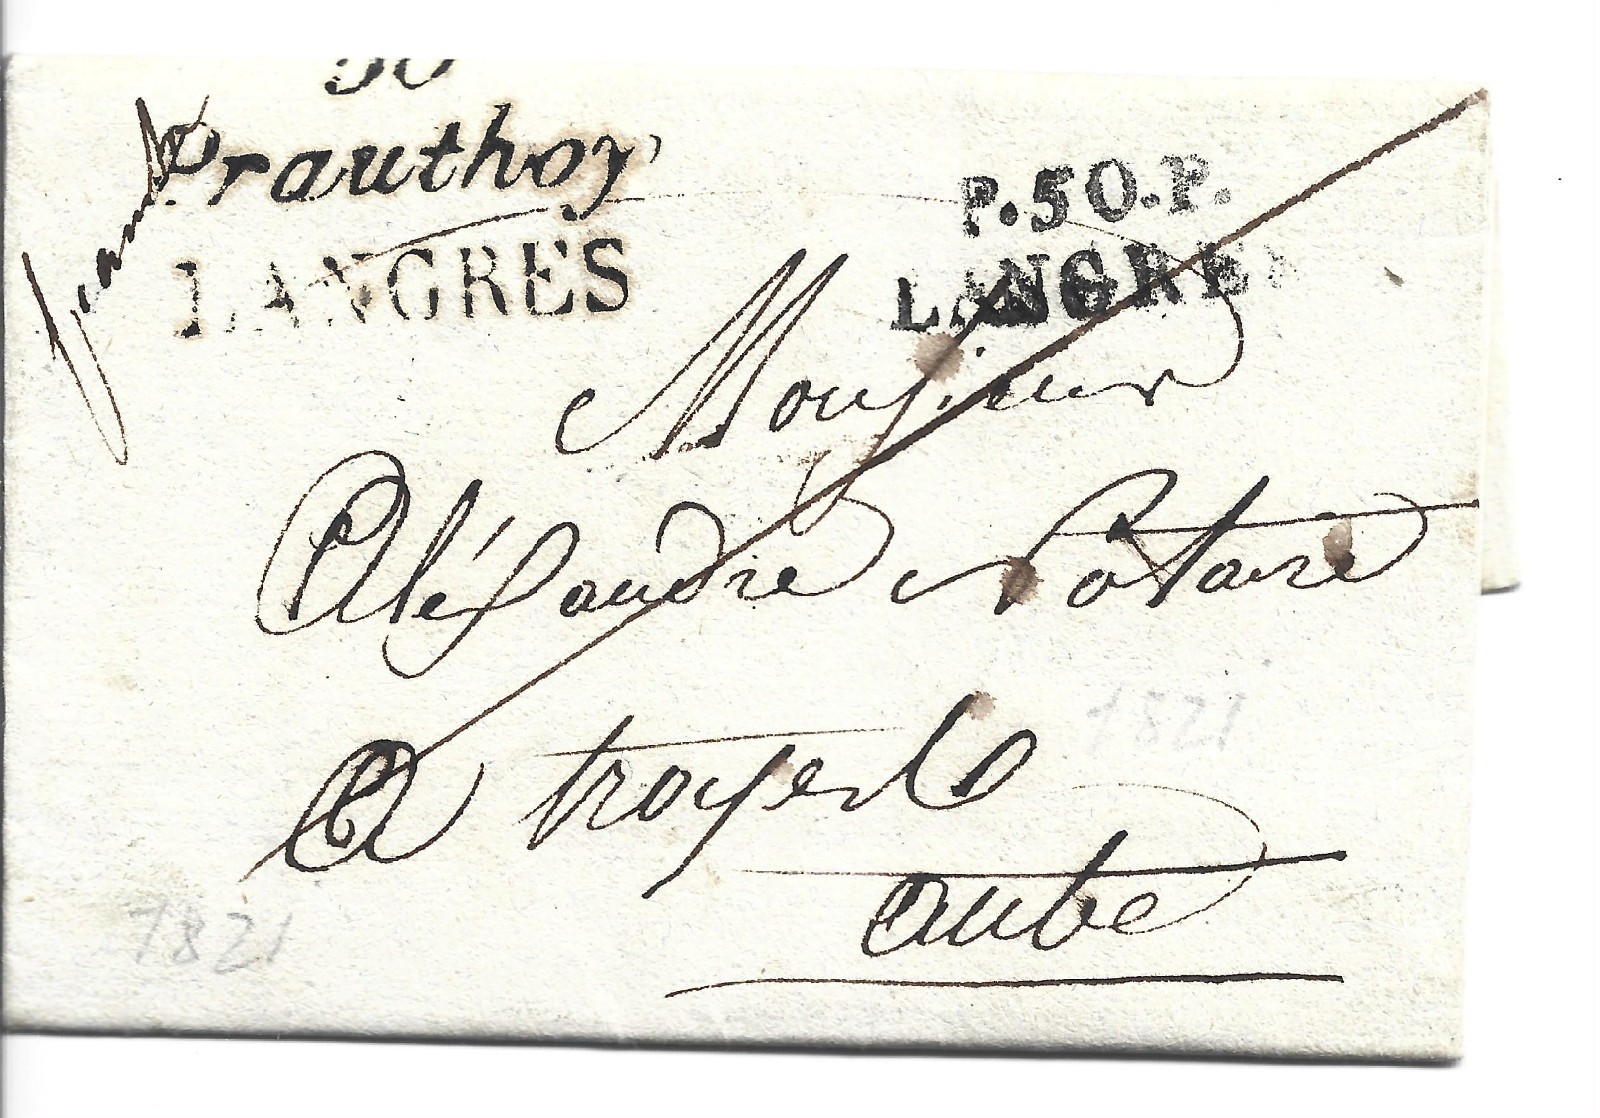 50
Prauthoy
LANGRES
P.50.P.
LANGRES
franche
Monsieur
Aléxandre Notaire
A troyes
aube
1821
1821